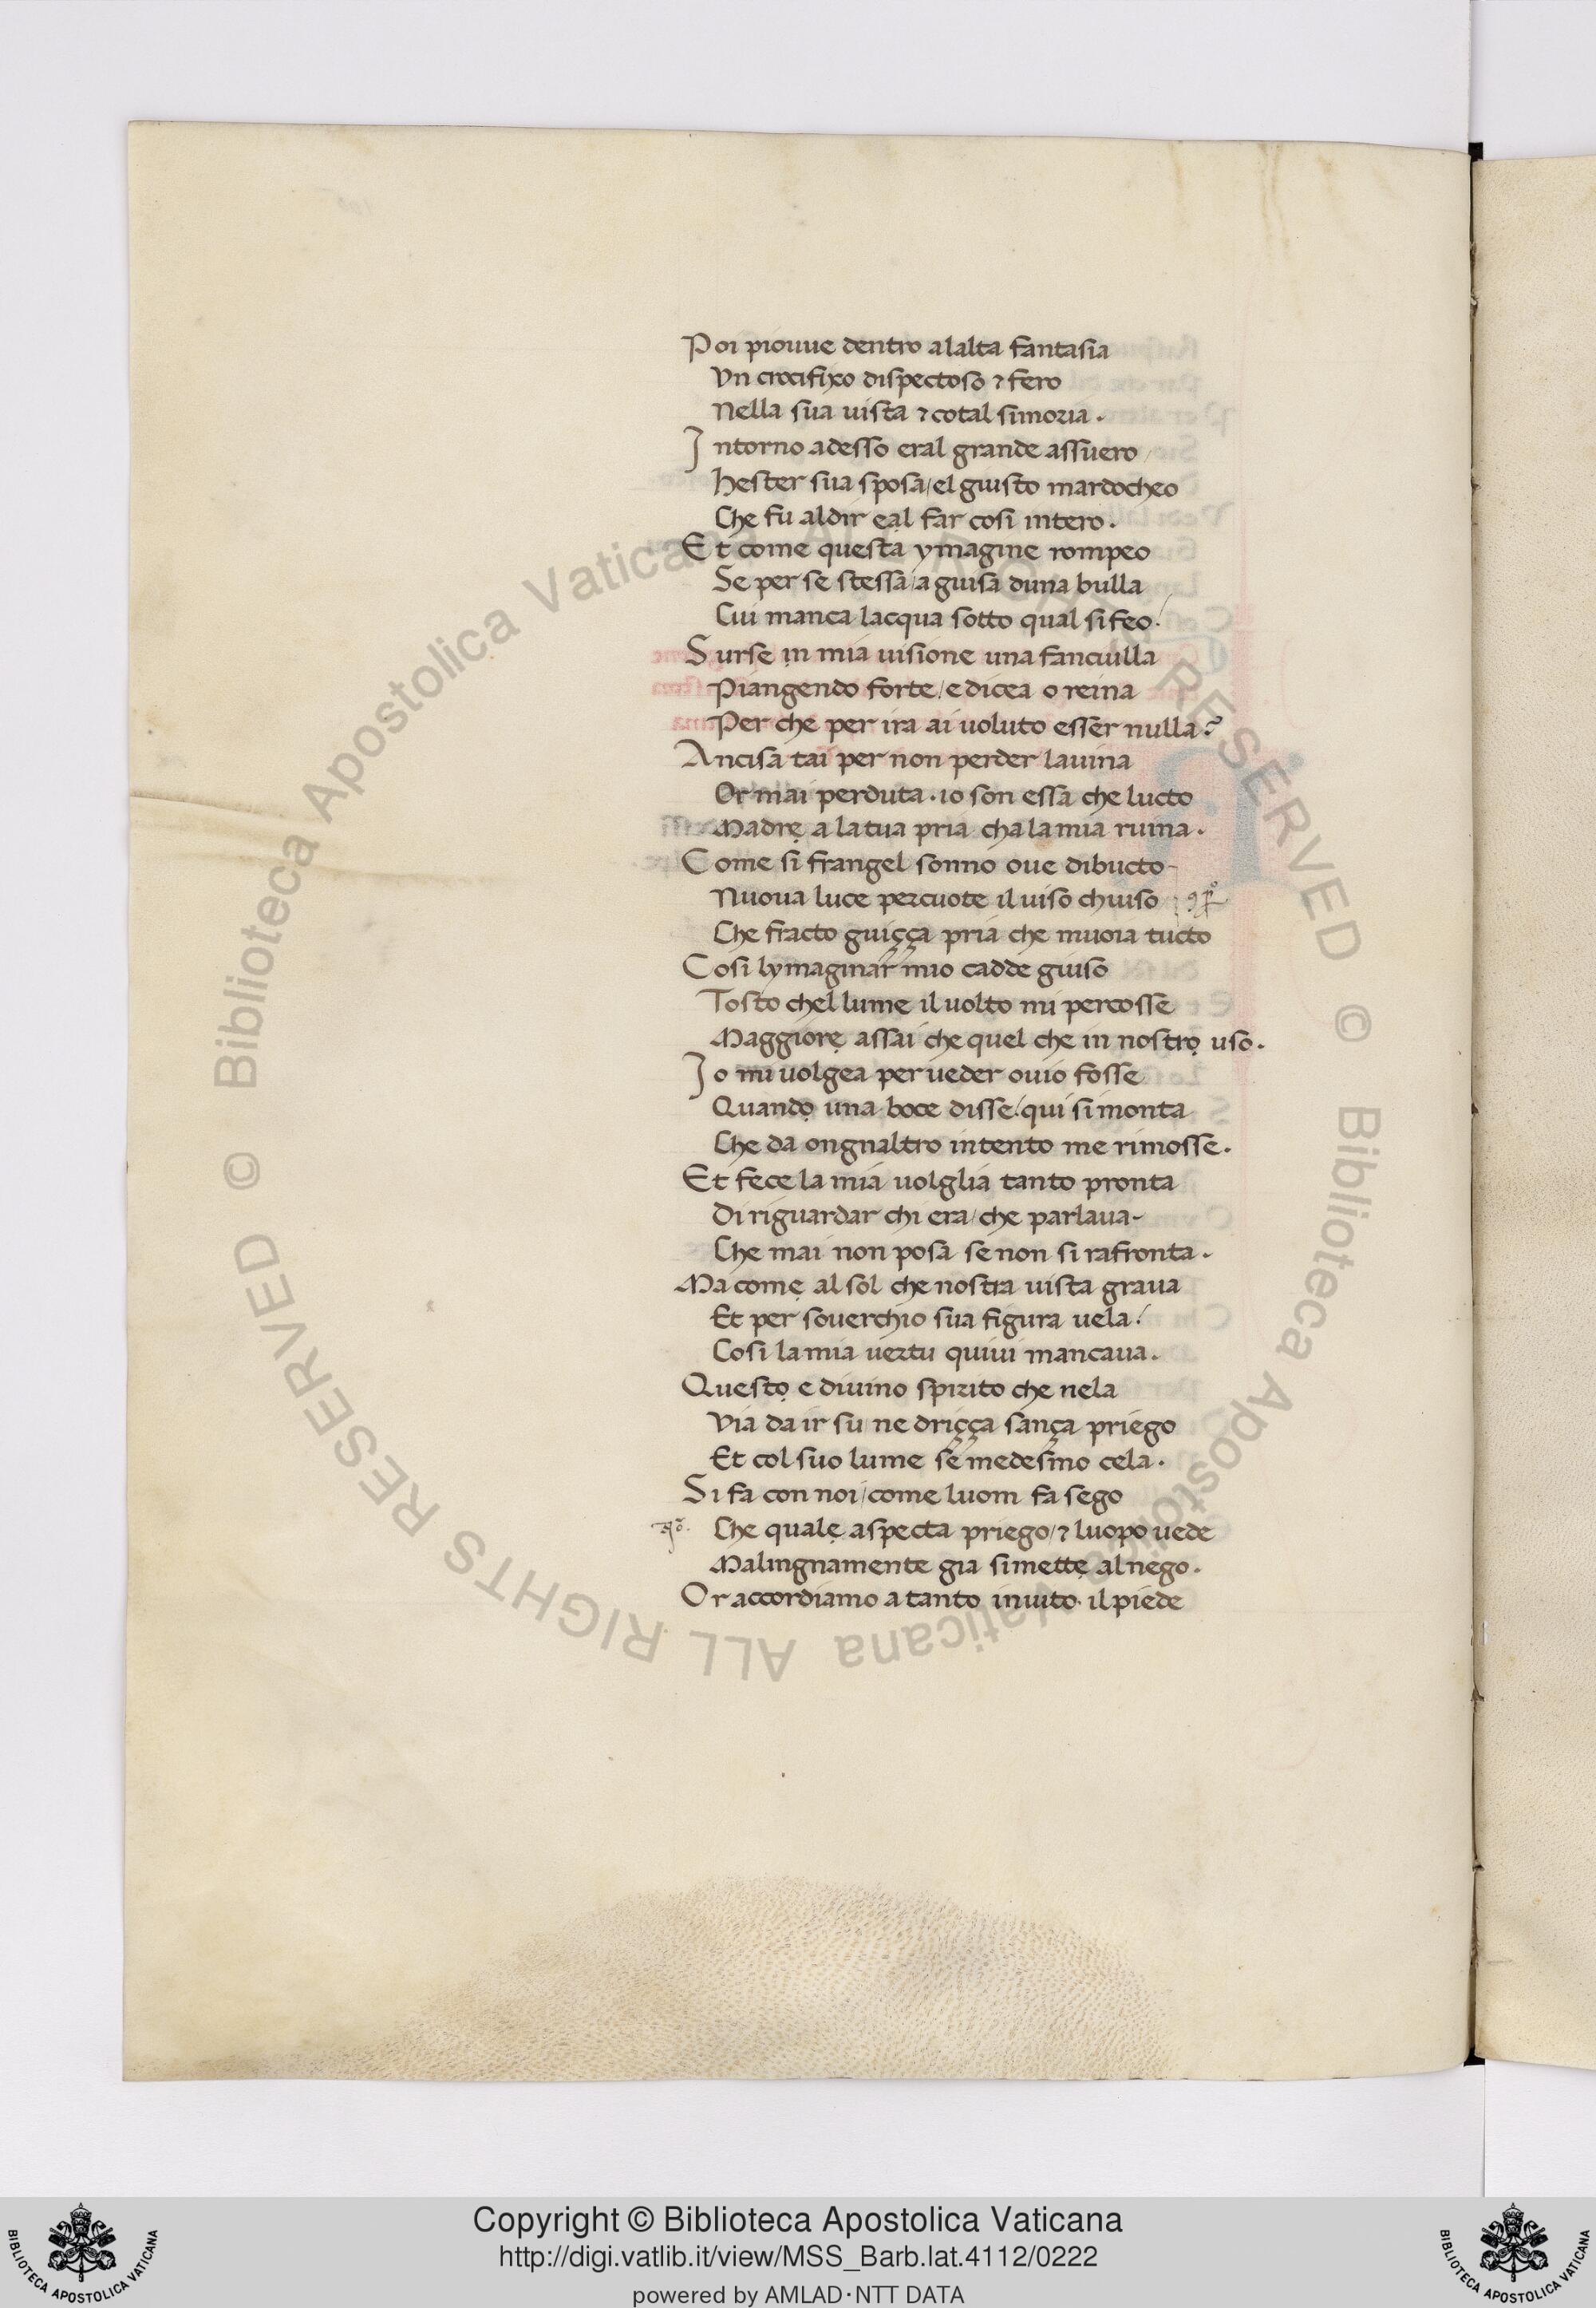 Poi piouue dentro alalta fantasia
Vn crocifixo dispectoso ⁊ fero
Nella sua uista ⁊ cotal simoria.
Intorno adesso eral grande assuero
Hester sua sposa/el giusto mardocheo
Che fu aldir eạl far cosi intero.
Et come questa ymagine rompeo
Se per se stessa/a guisa duna bulla
Cui manca lacqua sotto qual si feo.
Surse ịn mia uisione una fanciulla
Piangendo forte/e dicea o reina
Per che per ira ai uoluto esser nulla?
Ancisa tai per non perder lauina
Or mai perduta.io son essa che lucto
Madrẹ a la tua pria cha la mia ruina.
Come si frangel sonno oue dibucto
Nuoua luce percuote il uiso chiuso
Che fracto guiçça pria che muoia tucto
Cosi lymaginar mio cadde giuso
Tosto chel lume il uolto mi percosse
Maggiorẹ assai che quel che in nostrọ uso.
Io mi uolgea per ueder ouio fosse
Quandọ una boce disse/qui si monta
Che da ongnaltro intento me rimosse.
Et fece la mia uolglia tanto pronta
Di riguardar chi era/che parlaua
Che mai non posa se non si rafronta.
Ma comẹ al sol che nostra uista graua
Et per souerchio sua figura uela/
Cosi la mia uertu quiui mancaua.
Questọ e diuino spirito che nela
Via da ir su/ne driçça sança priego
Et col suo lume se medesmo cela.
Si fa con noi/come luom fa sego
Che qualẹ aspecta priego/⁊ luopo uede
Malingnamente gia si mettẹ al nego.
Or accordiamo a tanto inuito il piede
© Biblioteca Apostolica Vaticana ALL RIGHTS RESERVED © Biblioteca Apostolica Vaticana ALL RIGHTS RESERVED
Copyright © Biblioteca Apostolica Vaticana
http://digi.vatlib.it/view/MSS_Barb.lat.4112/0222
powered by AMLAD·NTT DATA
BIBLIOTECA APOSTOLICA VATICANA
BIBLIOTECA APOSTOLICA VATICANA